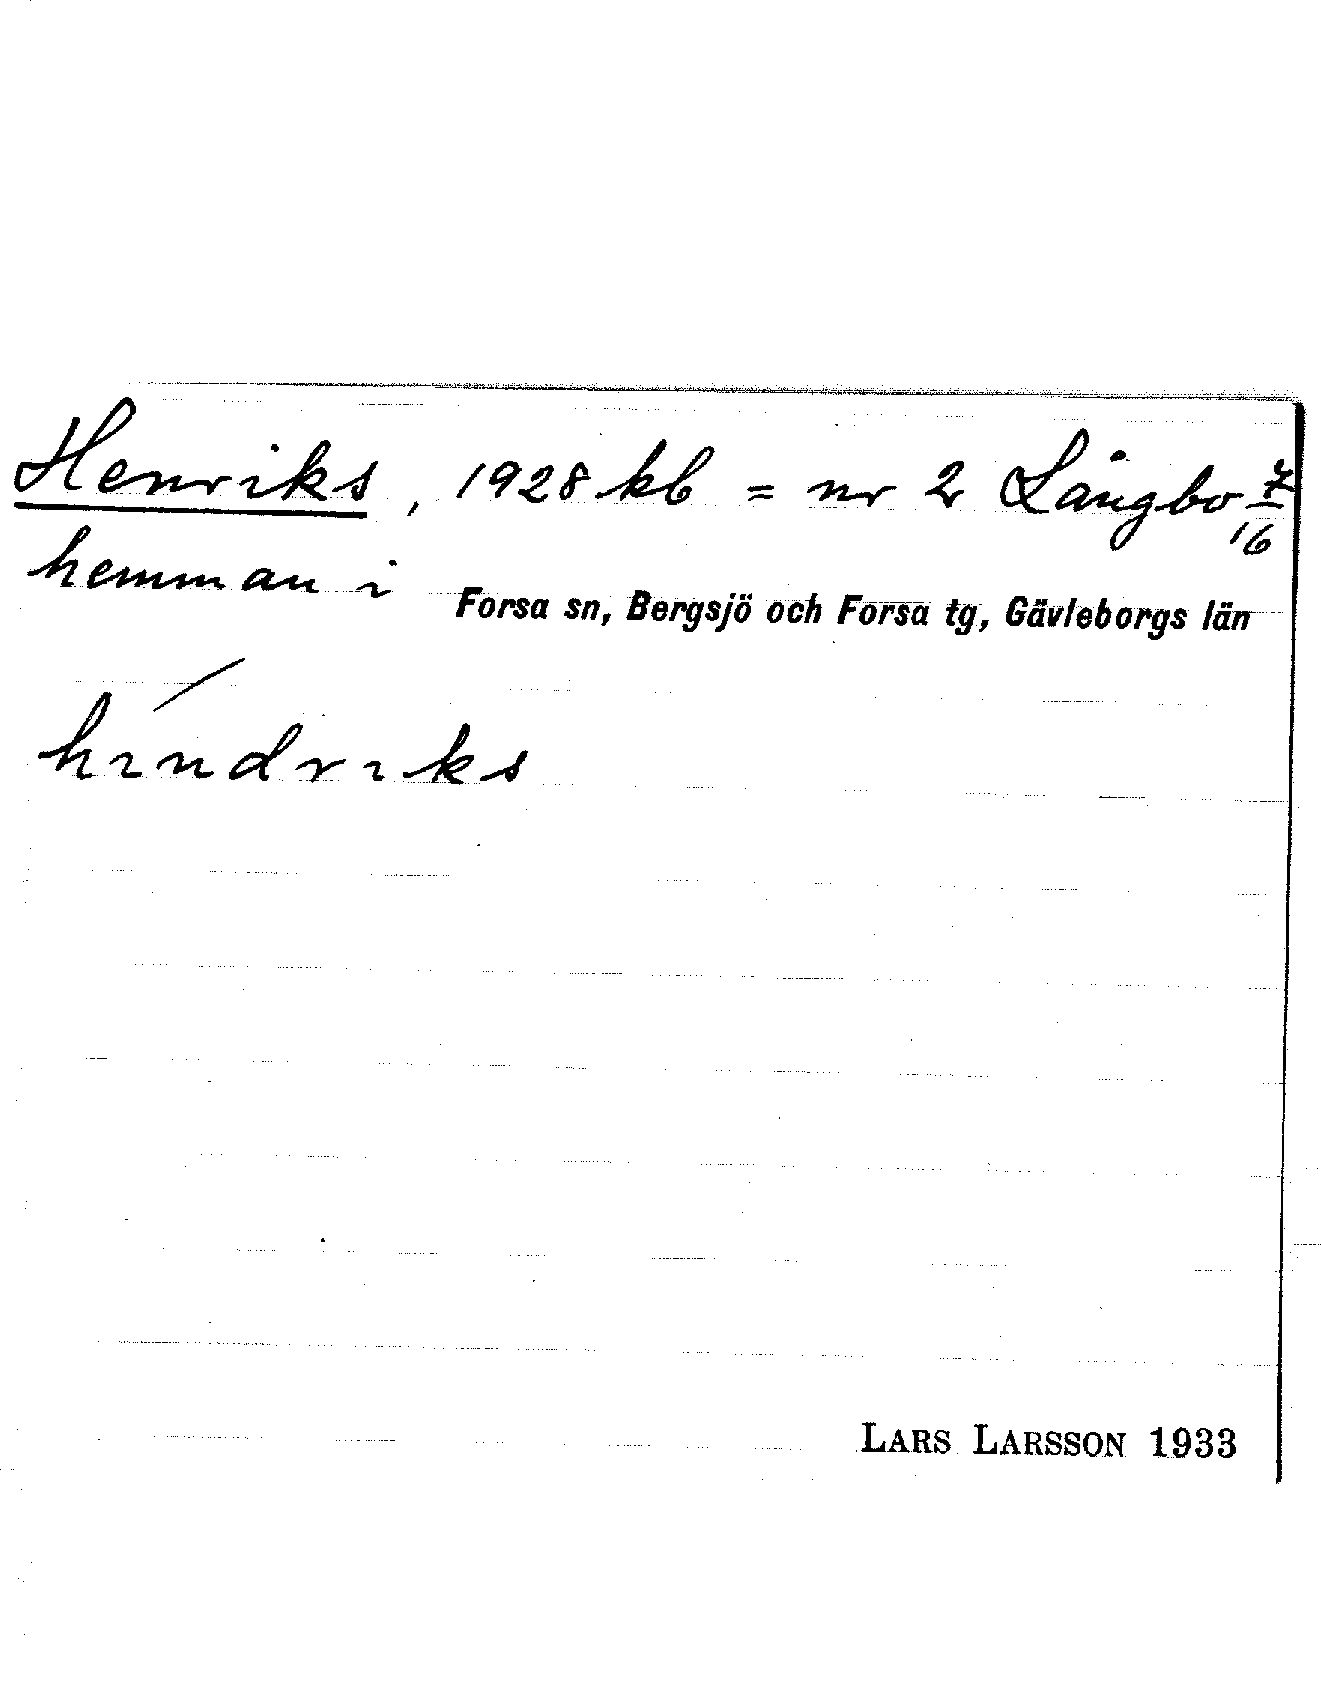 Henriks, 1928 kb = nr 2 Långbo 7/16
hemman i Forsa sn, Bergsjö och Forsa tg, Gävleborgs län
hı́ndrıks
LARS LARSSON 1933